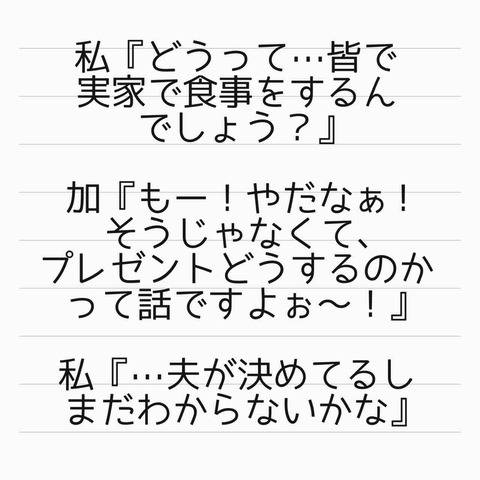 私『どうって…皆で
実家で食事をするん
でしょう？』
加『もー！やだなぁ！
そうじゃなくて、
プレゼントどうするのか
って話ですよぉ〜！』
私『…夫が決めてるし
まだわからないかな』